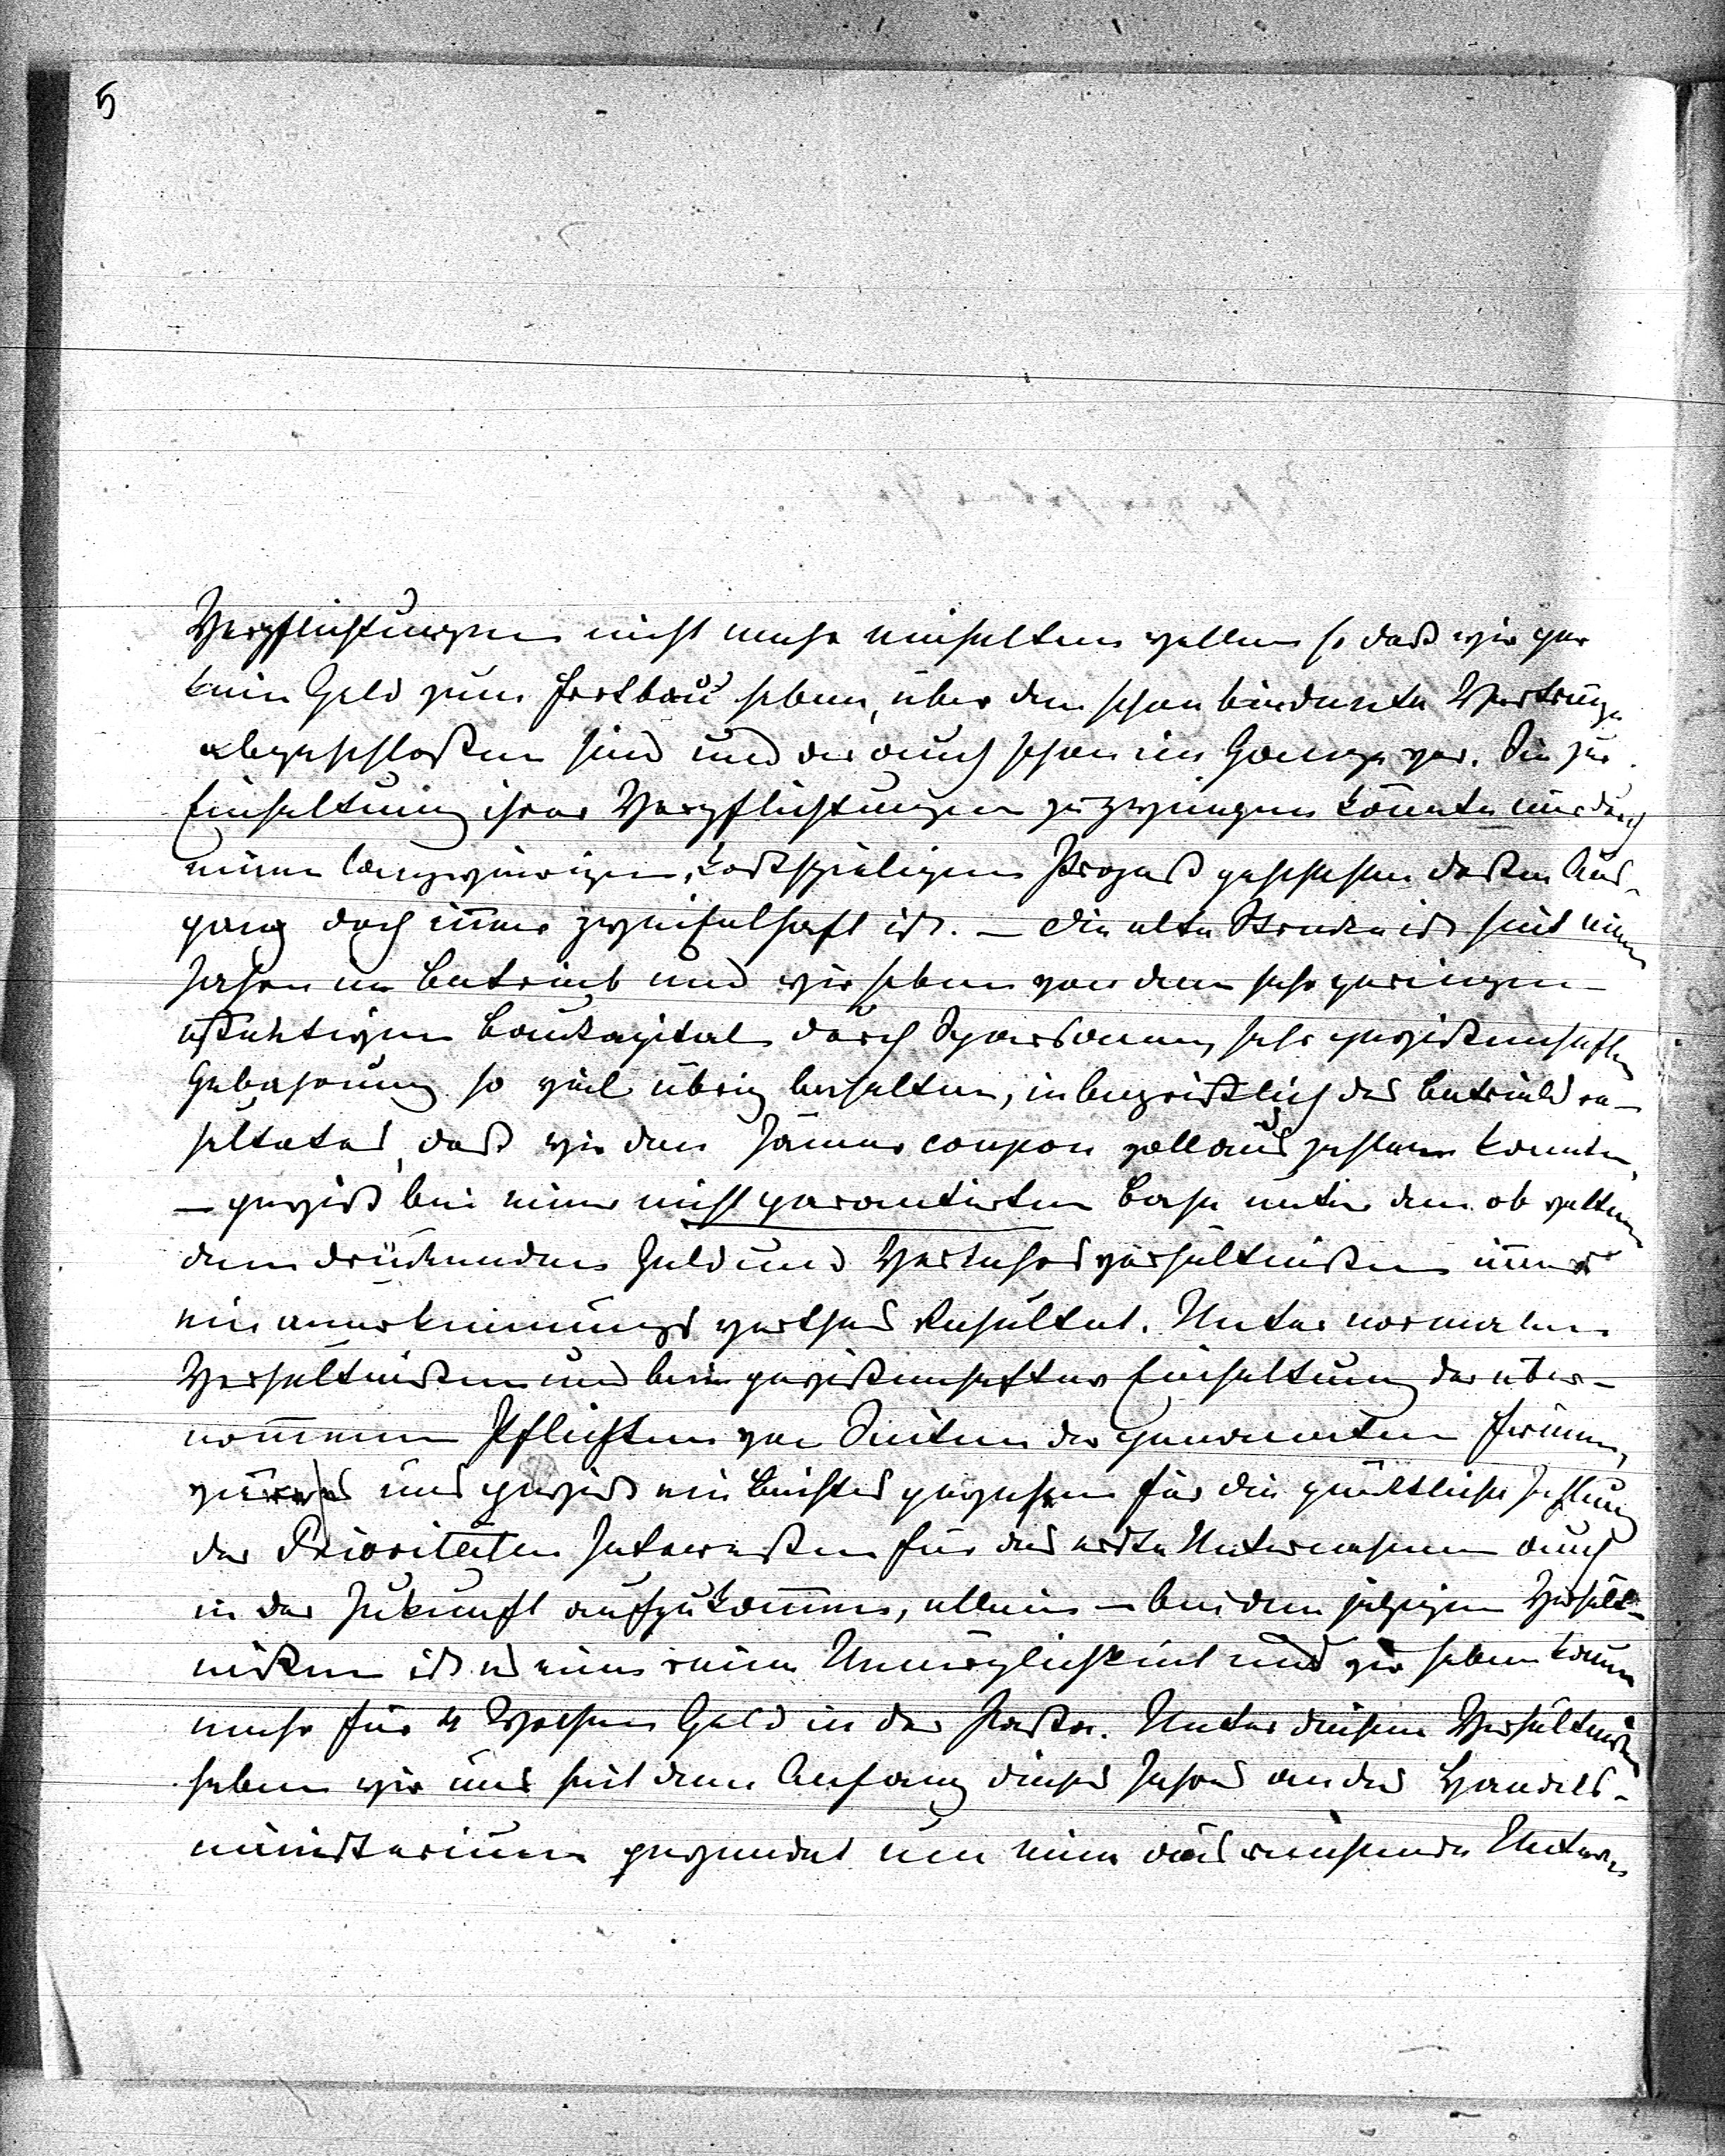 5
Verpflichtungen nicht mehr einhalten wollen so daß wir gar
kein Geld zum Fortbau haben, über den schon bindende Verträge
abgeschloßen sind und der auch schon im Gange war. Sie zur
Einhaltung ihrer Verpflichtungen zu zwingen könnte nur durch
einen langwierigen, kostspieligen Prozeß geschehen deßen Aus-
gang doch immer zweifelhaft ist. — Die alte Strecke ist seit einem
Jahre im Betrieb und wir haben von dem sehr geringen
Baukapital durch Sparsame, sehr gewißenhafte
Gebahrung so viel übrig behalten, inbegrifflich des Betriebsre-
sultates, daß wir den Jänner coupon voll auszahlen konnten,
— gewiß bei einer nicht garantirten Bahn unter den obwalten-
den drückenden Geld und Verkehrsverhältnißen immer
ein anerkennungswerthes Resultat. Unter normalen
Verhältnißen und bei gewißenhafter Einhaltung der über-
nommenen Pflichten von Seiten der genannten Firmen,
wäre es uns gewiß ein Leichtes gewesen für die pünktliche Zahlung
der Prioritäten Intereßen für das erste Unternehmen auch
in der Zukunft aufzukommen, allein — bei den jetzigen Verhält-
nißen ist es eine reine Unmöglichkeit und wir haben kaum
mehr für 4 Wochen Geld in der Kaße. Unter diesen Verhältnißen
haben wir uns seit dem Anfang dieses Jahres an das Handels-
ministerium gewendet um eine ausreichende Unter-